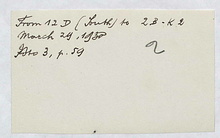 From 12 D (South) to 2B-K2
March 29, 1938
3, p. 59
2